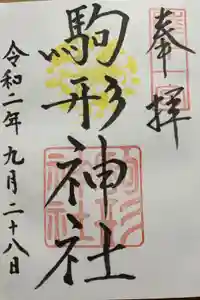 奉拝
駒形神社
令和二年九月二十八日